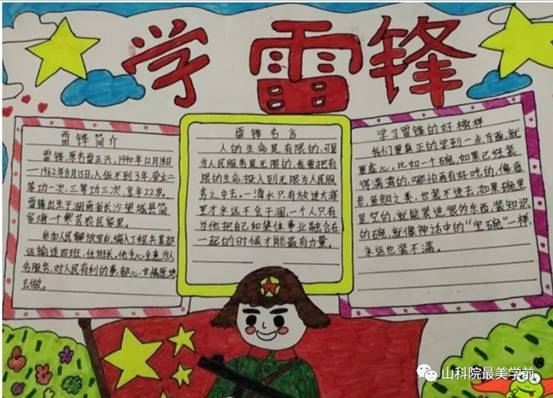 学雷锋
雷锋简介
雷锋,原名雷正兴,1940年12月18日
—1962年8月15日,入伍不到3年,荣立二
等功一次,三等功三次,享年22岁。
雷锋出生于湖南省长沙望城县简
家塘一个贫苦农民家里。
参加人民解放军后,编入工程兵某部
运输连四班,任班长,他全心全意为人
民服务,对人民有利的事,都心甘情愿地
去做。
雷锋名言
人的生命是有限的,可
为人民服务是无限的,我要把有
限的生命投入到无限为人民服
务之中去。一滴水只有放进大海
里才永远不会干涸,一个人只有
当他把自己和集体事业融合在
一起的时候才能最有力量。
学习雷锋的好榜样
我们要真正的学到一点东西,就
要虚心。比如一个碗,如果已经装
得满满的,哪怕再有好吃的,像
之类,也装不进去,如果碗里
是空的,就能装进很多东西。装知识
的碗,就像神话中的"宝碗"一样,
永远也装不满。
山科院最美学前